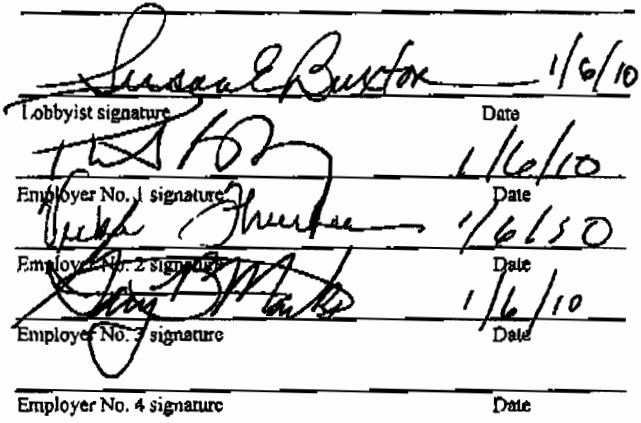 Susan E Buxton 1/6/10
Lobbyist signature Date
1/6/10
Employer No. 1 signature Date
1/6/10
Employer No. 2 signature Date
1/6/10
Employer No. 3 signature Date
Employer No. 4 signature Date